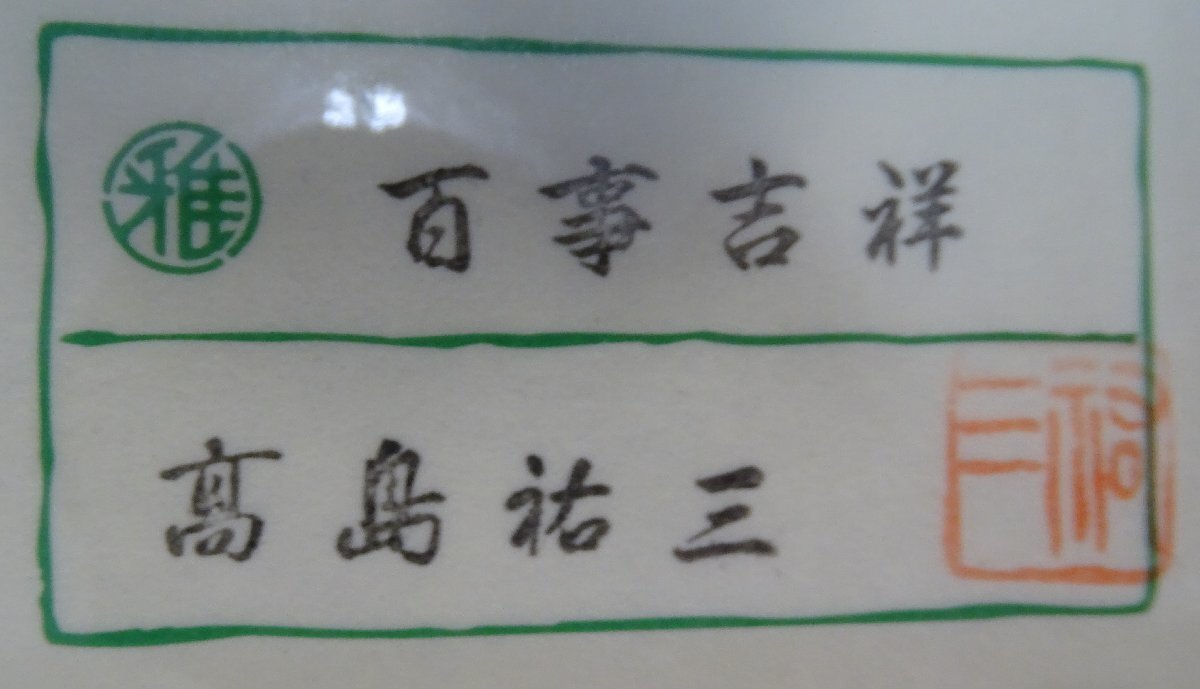 雅 百事吉祥
髙島祐三
祐三